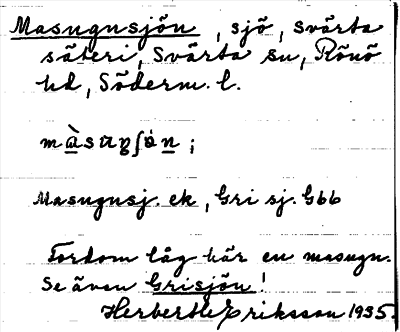 Masugnsjön, sjö, Svärta
säteri, Svärta sn, Rönö
hd, Söderm. l.
Masugnsj. ek, Gri sj. Gbb
Fordom låg här en masugn.
Se även Grisjön!
Herbert Eriksson 1935.